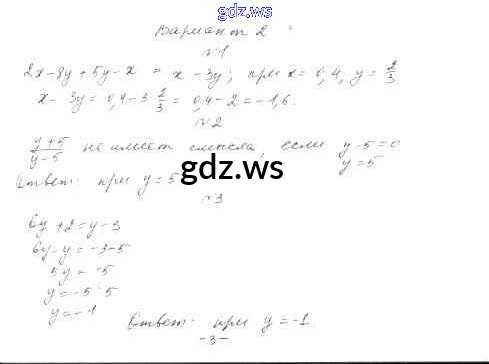 gdz.ws
Вариант 2
№1
2x-8y+5y-x = x-3y; при x=0,4, y=2/3
x-3y=0,4-3·2/3=0,4-2=-1,6.
№2
y+5/y-5 не имеет смысла, если y-5=0
y=5
gdz.ws
Ответ: при y=5
№3
6y+2=y-3
6y-y=-3-5
5y=-5
y=-5:5
y=-1
Ответ: при y=-1.
-3-
gdz.ws